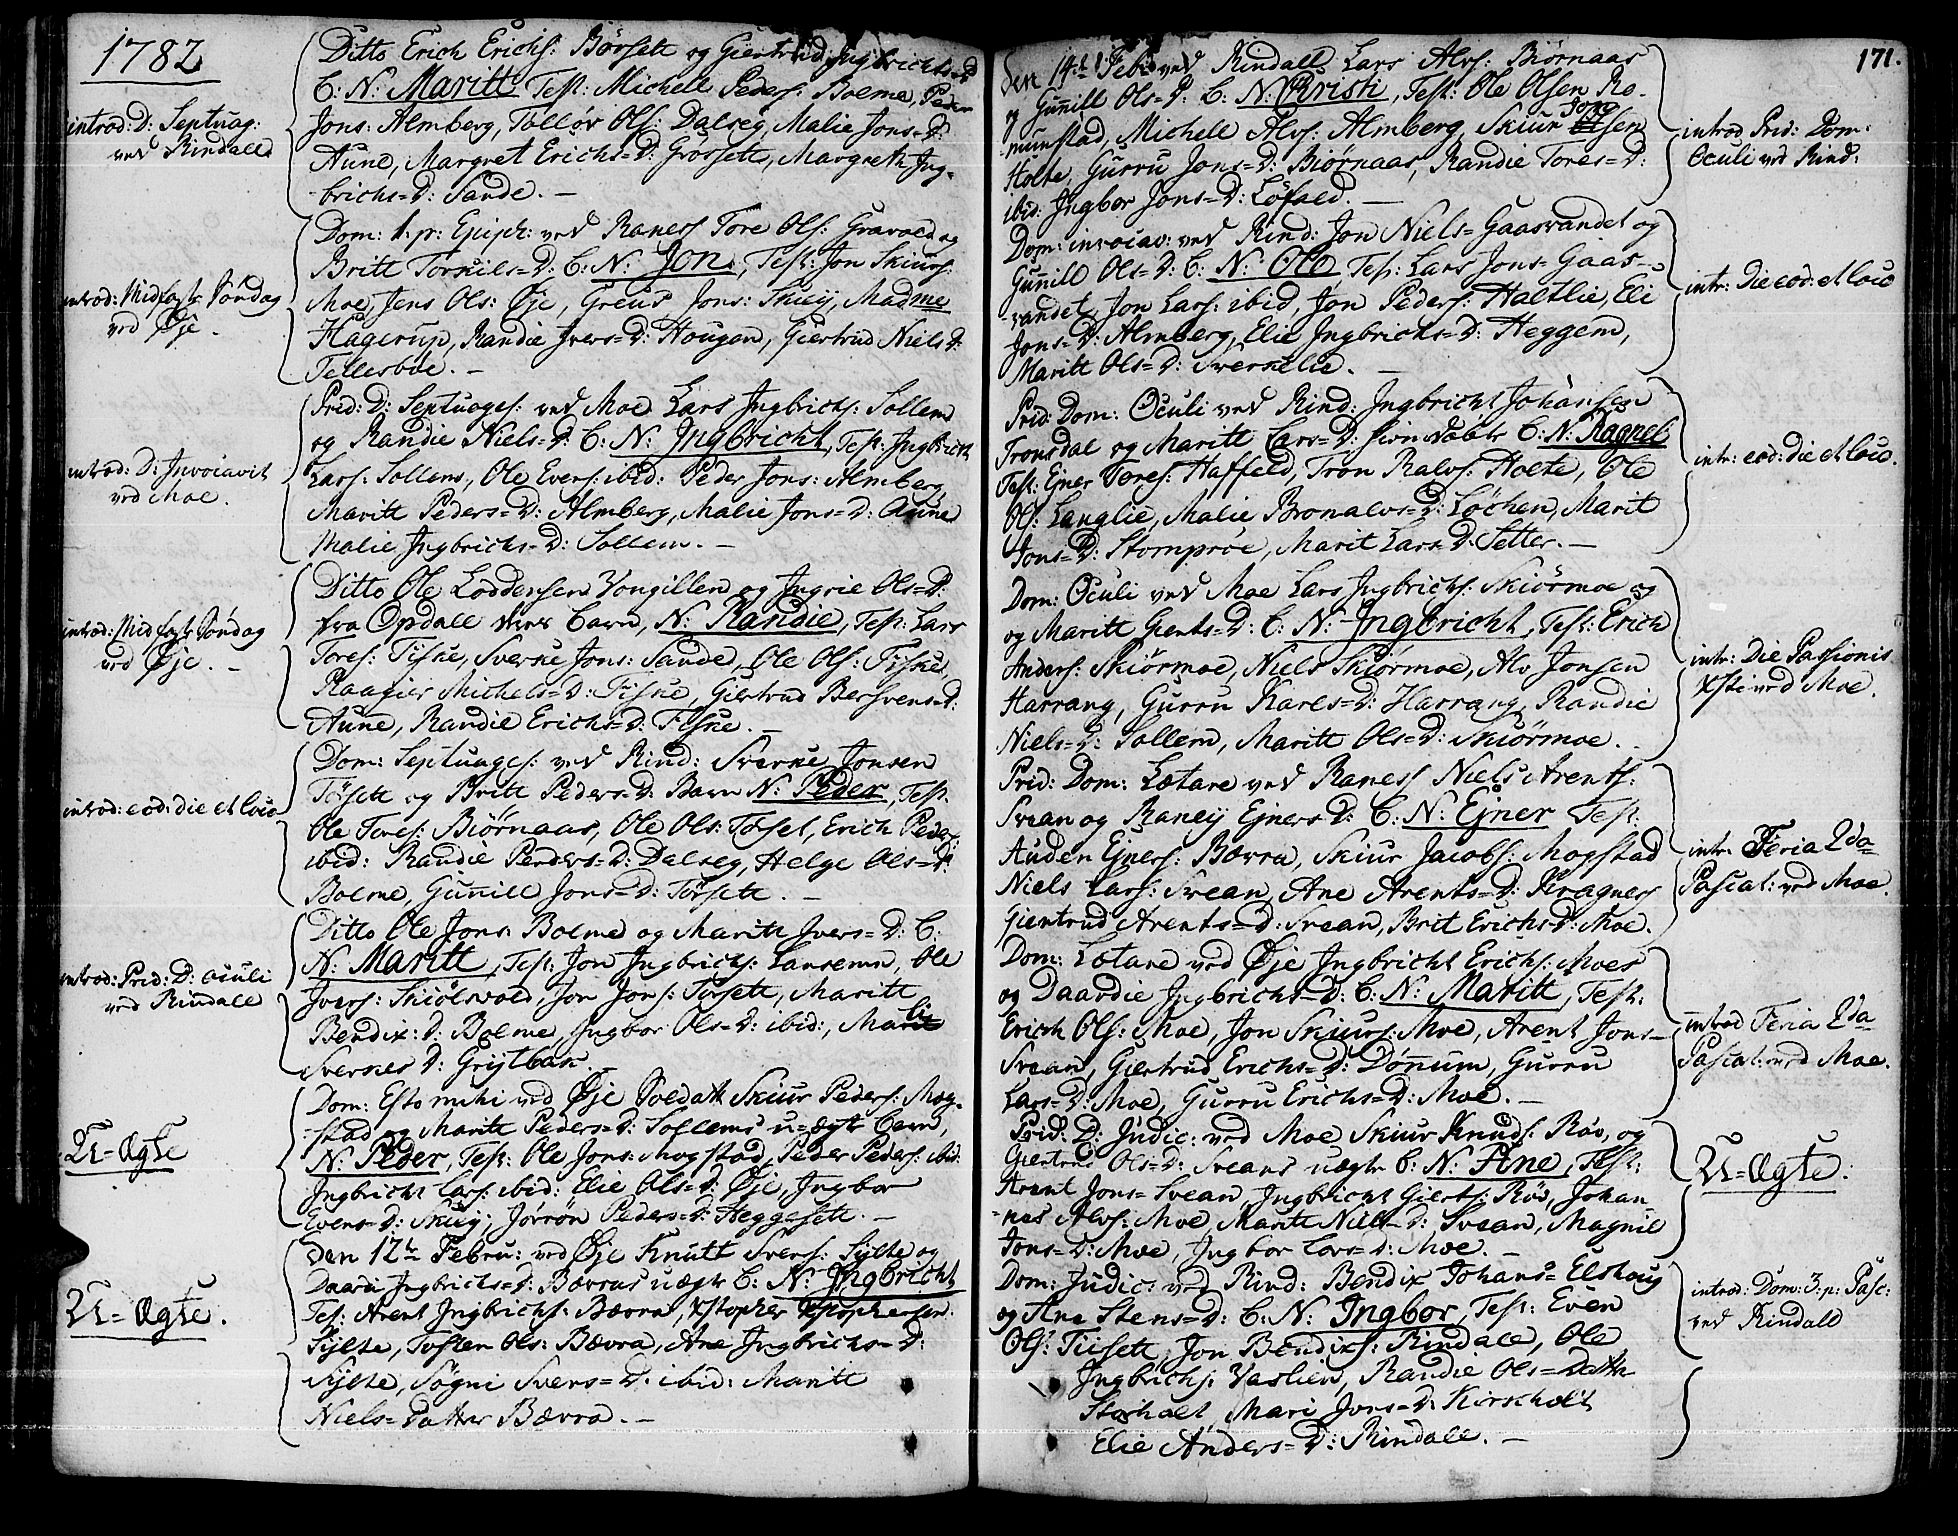 1782
Ditto Erich Erichs: Börsett og Giertrud Jngbrichts=D
C: N: Maritt Test: Michell Peders: Bolme, Peder
Jons: Almberg, Tollöv Ols: Dalseg, Malie Jons=D:
Aune, Margret Erichs=D: Grösett, Margreth Jng-
brichs=D: Sande. –
introd: D: Septuag:
ved Rindall
Dom: 1. p: Epiph: ved Raness Tore Ols: Gravold og
Britt Torkils=D: C: N: Jon, Test: Jon Skiurs:
Moe, Jens Ols: Øje, Greus Jons: Skeij, Madme
Hagerup, Randie Jvers=D: Hougen, Giertrud Niels D:
Tellesböe. –
introd: Midfaste Söndag
ved Øje.
Prid: D: Septuages: ved Moe Lars Jngbrichs: Sollem
og Randie Niels=D: C: N: Jngbricht, Test: Jngbricht
Lars: Sollems, Ole Evens: ibid: Peder Jons: Almberg
Maritt Peders=D: Almberg, Malie Jons=D: Aune
Malie Jngbrichs=D: Sollem. –
introd: D: Jnvocavit
ved Moe.
Ditto Ole Loddensen Vongillen og Jngrie Ols=D:
fra Opdall deres Barn, N: Randie, Test: Lars
Tores: Fiske, Sverke Jons: Sande, Ole Ols: Fiske,
Raagier Michels=D: Fiske, Giertrud Bersvens=D:
Aune, Randie Erichs=D: Fiske. –
introd: Midfaste Söndag
ved Øje. –
Dom: Septuages: ved Rind: Sverke Jonsen
Törsett og Britt Peders=D: Barn N: Peder, Test:
Ole Tores: Biörnaas, Ole Ols: Töset, Erich Peders:
ibid: Randie Penders=D: Dalseg, Helge Ols=D:
Bolme, Gunill Jons=D: Törsett. –
introd: eod: die et loco
Ditto Ole Jons: Bolme og Maritt Jvers=D: C:
N: Maritt, Test: Jon Jngbrichs: Lansemn, Ole
Jvers: Skiölsvold, Jon Jons: Törsett, Maritt
Bendix: d: Bolme, Jngbor Ols=D: ibid:, Marit
Sverkes D: Grytbak.
introd: Prid: D: oculi
ved Rindall
Dom: Esto mihi ved Øje Soldatt Skiur Peders: Mog-
stad og Maritt Peders=D: Sollems u=ægte Barn,
N: Peder, Test: Ole Jons: Mogstad, Peder Peders: ibid:
Jngbricht Lars: ibid: Elie Ols=D: Øje, Jngbor
Evens=D: Skeij, Jörrön Peders=D: Heggesett. –
U=Ægte
Den 12te Febru: ved Øje Knutt Svers: Sylte og
Daardi Jngbrichs=D: Bævras uægte C: N: Jngbricht
Tes: Arent Jngbrichs: Bævra, Xstopher Xstophersen:
Sylte, Tosten Ols: Bævra, Ane Jngbrichs=D:
Sylte, Sögni Svers=D: ibid: Maritt
Niels=Datter Bævra. –
U=Ægte.
171.
Den 14de Feb: ved Rindall Lars Alvs: Biörnaas
og Gunill Ols=D: C: N: Kristi, Test: Ole Olsen Ro-
munstad, Michell Alvs: Almberg, Skiur Jonsen
Holte, Gurru Jons=D: Biörnaas, Randie Tores=D:
ibid: Jngbor Jons=D: Löfald. –
introd Prid: Dom:
Oculi ved Rind:
Dom: invocav: ved Rind: Jon Niels= Gaasvandet og
Gunill Ols=D: C: N: Ole Test: Lars Jons= Gaas-
vandet, Jon Lars: ibid, Jon Peders: Haltlie, Eli
Jons=D: Almberg, Elie Jngbrichs=D: Heggem,
Maritt Ols=D: Sverkelie. –
intr: Die eod: et loco
Prid: Dom: Oculi ved Rind: Jngbricht Johansen
Tronsdal og Maritt Lars=D: C: N: Ragnel
Test: Ejner Tores: Haffeld, Tron Ralvs: Holte, Ole
Ols: Langlie, Malie Bronalvs=D: Löchen, Marit
Jons=D: Stomprøe, Marit Lars D: Setter. –
intr: eod: die et loco.
Dom: Oculi ved Moe Lars Jngbrichs: Skiörmoe og
og Maritt Gients=D: C: N: Jngbricht, Test: Erich
Anders: Skiörmoe, Niels Skiörmoe, Alv Jonsen
Harrang, Gurru Karls=D: Harrang, Randie
Niels=D: Sollem, Maritt Ols=D: Skiörmoe. –
intr: Die Passionis
Xsti ved Moe.
Prid: Dom: Lætare ved Raness Niels Arents:
Svean og Raneij Ejners D: C: N: Ejner Test:
Auden Ejners: Bævra, Skiur Jacobs: Mogstad
Niels Lars: Svean, Ane Arents=D: Kragness
Giertrud Arents=D: Svean, Brit Erichs D: Moe.
intr: Feria 2da
Pascal: ved Moe.
Dom: Lætare ved Øje Jngbricht Erichs: Moes
og Daardie Jngbrichs=D: C: N: Maritt, Test:
Erich Ols: Moe, Jon Skiurs: Moe, Arent Jons-
Svean, Giertrud Erichs=D: Dönum, Gurru
Lars=D: Moe, Gurru Erichs=D: Moe. –
introd Feria 2da
Pascal: ved Moe.
Prid: D: Judic: ved Moe Skiur Knuds: Röv, og
Giertrud Ols=D: Sveans uægte C: N: Ane, Test:
Arent Jons= Svean, Jngbricht Gierts: Röv, Johan-
nes Alvs: Moe, Maritt Niels=D: Svean, Magnil
Jons=D: Moe, Jngbor Lars=D: Moe. –
U=Ægte:
Dom: Judic: ved Rind: Bendix Johans= Elshoug
og Ane Stens=D: C: N: Ingbor, Test: Even
Ols: Tiisett, Jon Bendixs: Rindall, Ole
Jngbrichs: Vaslien, Randie Ols=Datter
Storholt, Mari Jons=D: Kirkholt
Elie Anders=D: Rindall. –
introd: Dom: 3: p: Pasc:
ved Rindall